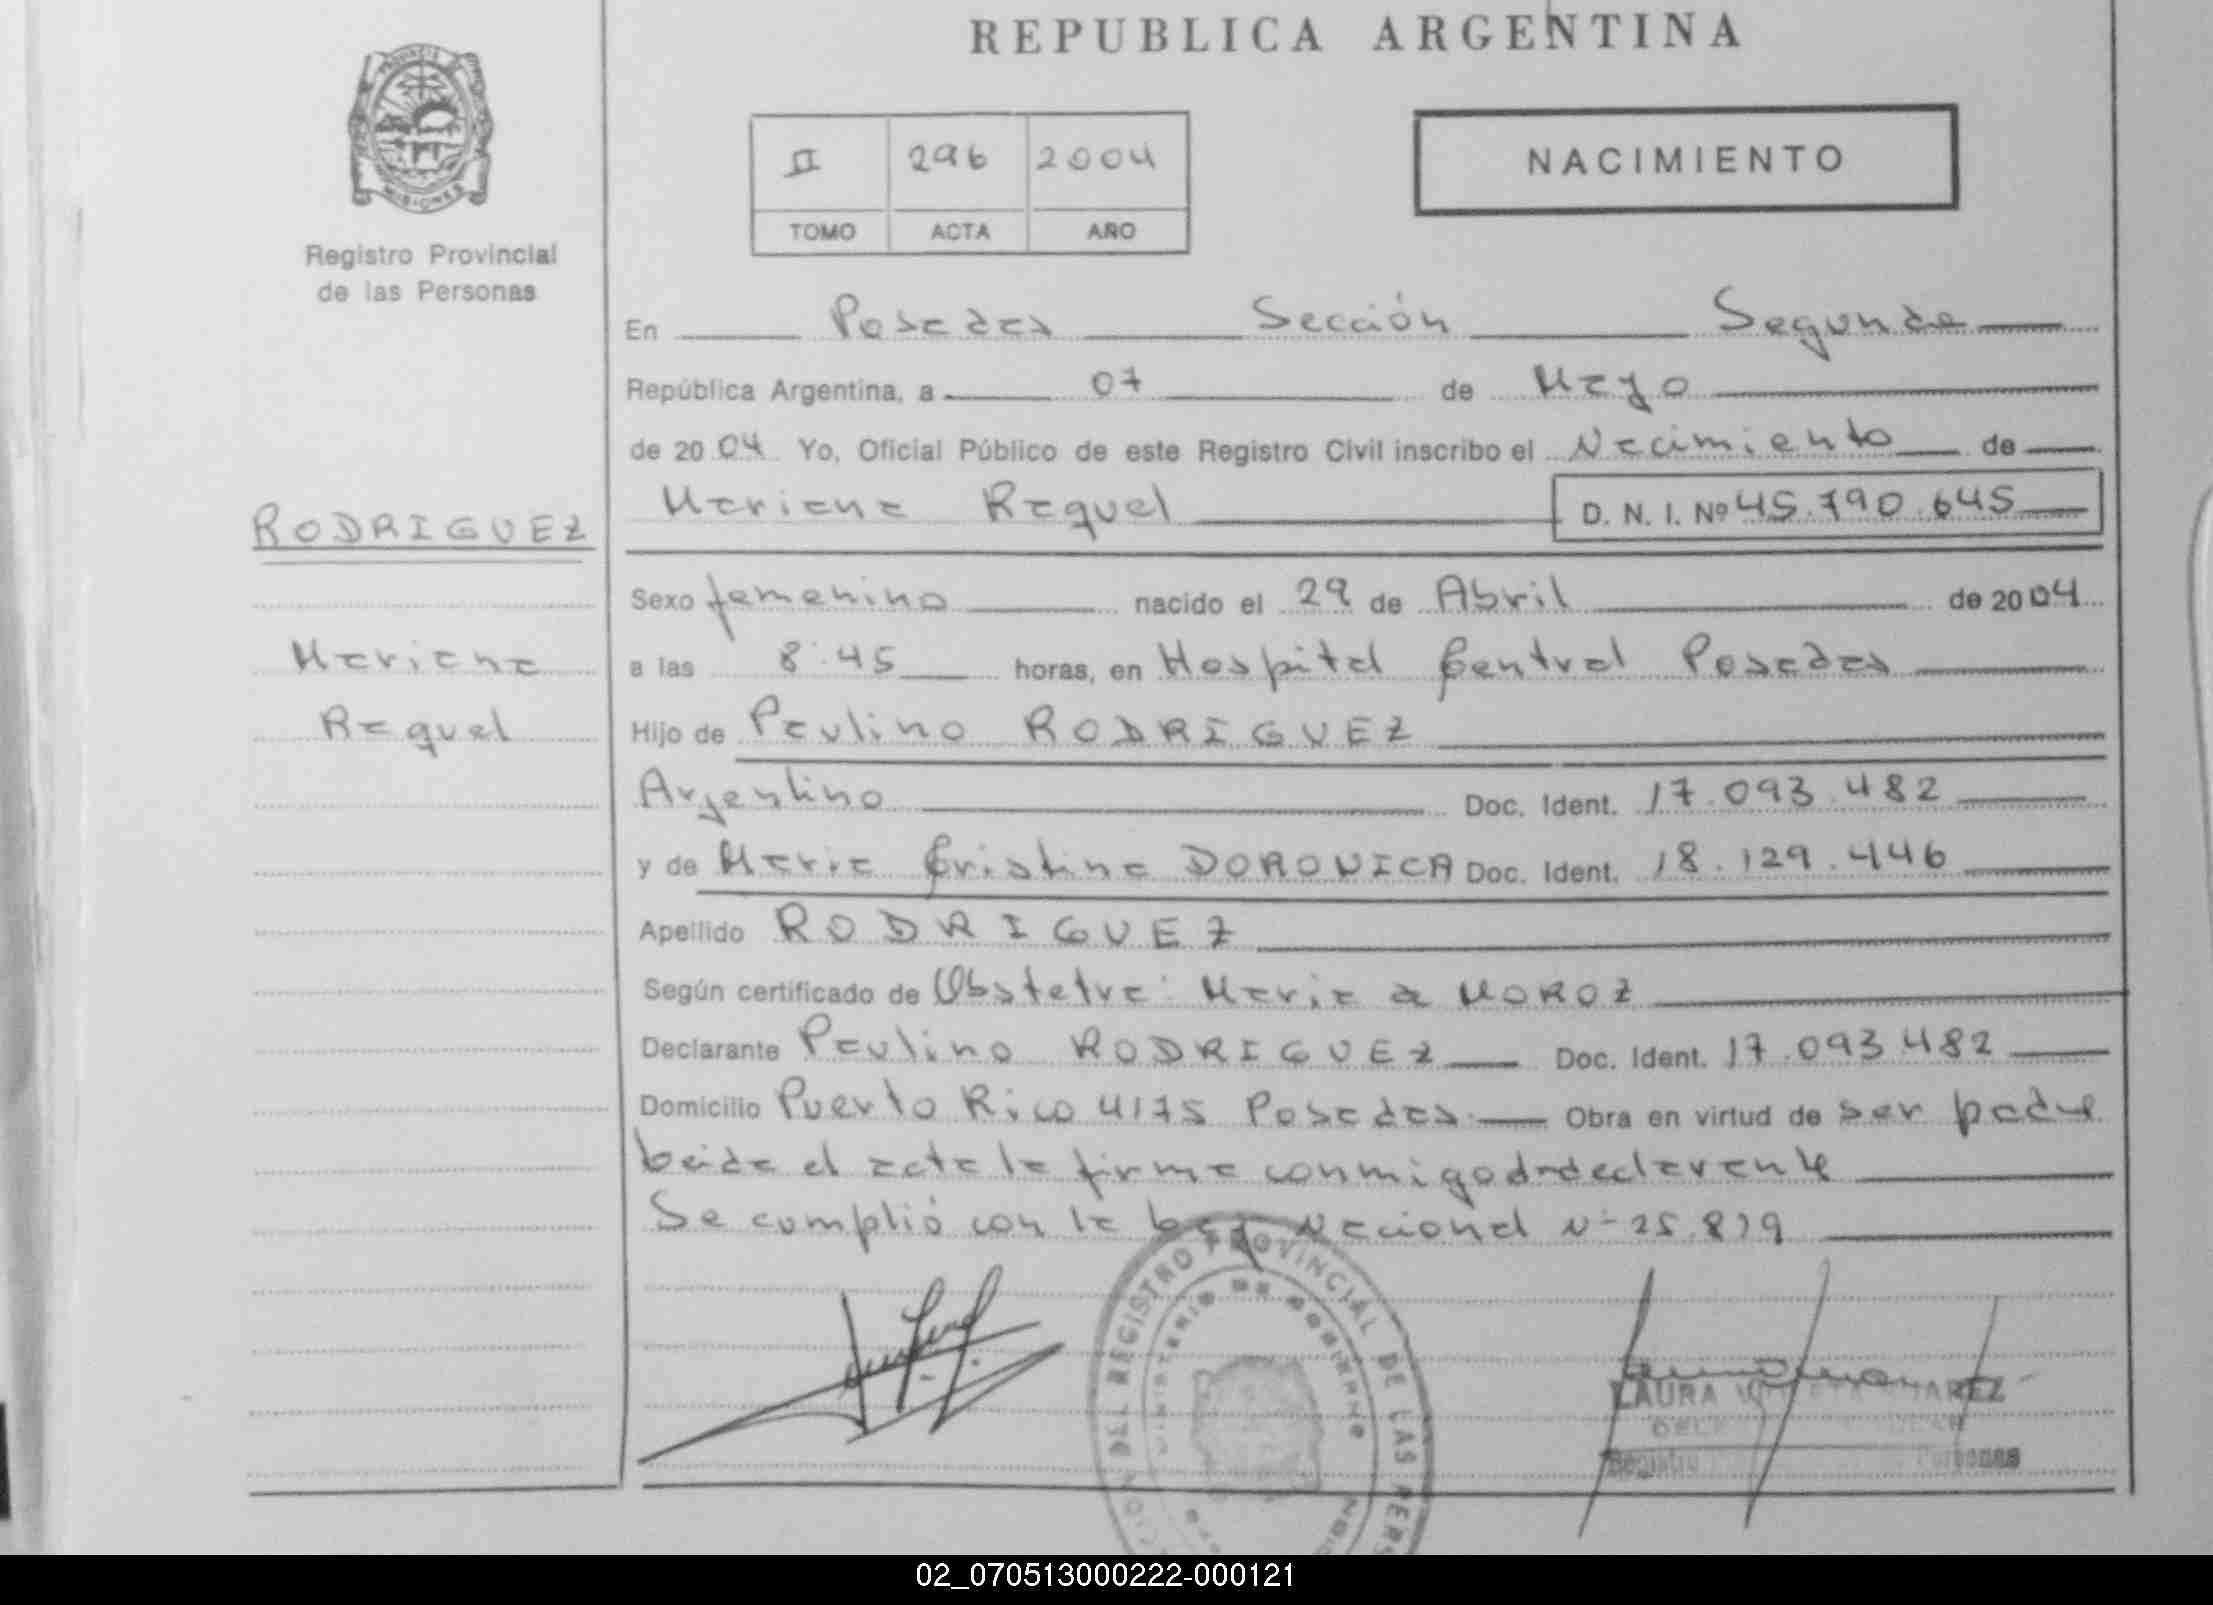 REPUBLICA ARGENTINA
PROVINCIA DE MISIONES
Registro Provincial
de las Personas
II 296 2004
TOMO ACTA AÑO
NACIMIENTO
En Posadas Sección Segunda
República Argentina, a 07 de Mayo
de 2004 Yo, Oficial Público de este Registro Civil inscribo el Nacimiento de
Mariana Raquel D. N. I. Nº 45.790.645
RODRIGUEZ
Mariana
Raquel
Sexo femenino nacido el 29 de Abril de 2004
a las 8:45 horas, en Hospital Central Posadas
Hijo de Paulino RODRIGUEZ
Argentino Doc. Ident. 17.093.482
y de Maria Cristina DOROVICA Doc. Ident. 18.129.446
Apellido RODRIGUEZ
Según certificado de Obstetra: Maria MOROZ
Declarante Paulino RODRIGUEZ Doc. Ident. 17.093.482
Domicilio Puerto Rico 4175 Posadas. Obra en virtud de ser padre
Leida el acta la firma conmigo declarante
Se cumplió con la Ley Nacional Nº 25.819
REGISTRO PROVINCIAL DE LAS
MINISTERIO DE GOBIERNO
LAURA
Registro Personas
02_070513000222-000121